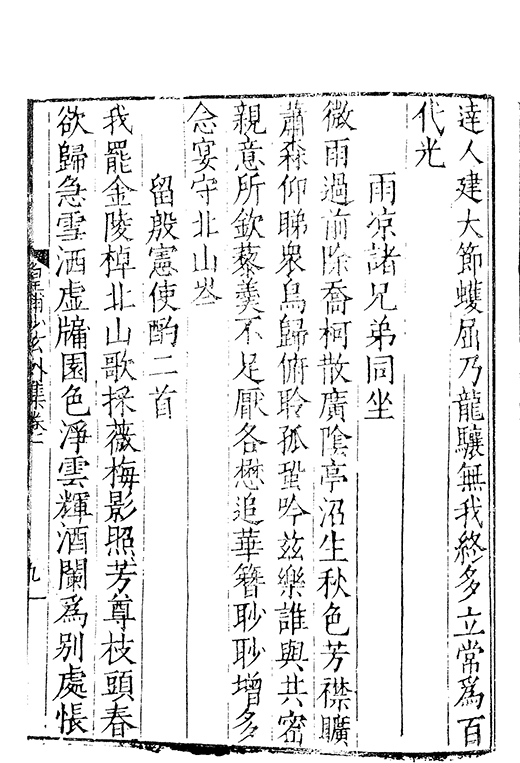 達人建大節蠖屈乃龍驤無我終多立常爲百
代光
雨凉諸兄弟同坐
微雨過前除喬柯散廣陰亭沼生秋色芳襟曠
蕭森仰睇衆鳥歸俯聆孤蛩吟兹樂誰與共密
親意所欽藜羮不足厭各懋追華簪眇眇增多
念宴守北山岑
留殷憲使酌二首
我罷金陵棹北山歌採薇梅影照芳尊枝頭春
欲歸急雪洒虚牖園色淨雲輝酒闌爲别處悵
皇甫少玄外集卷二
九